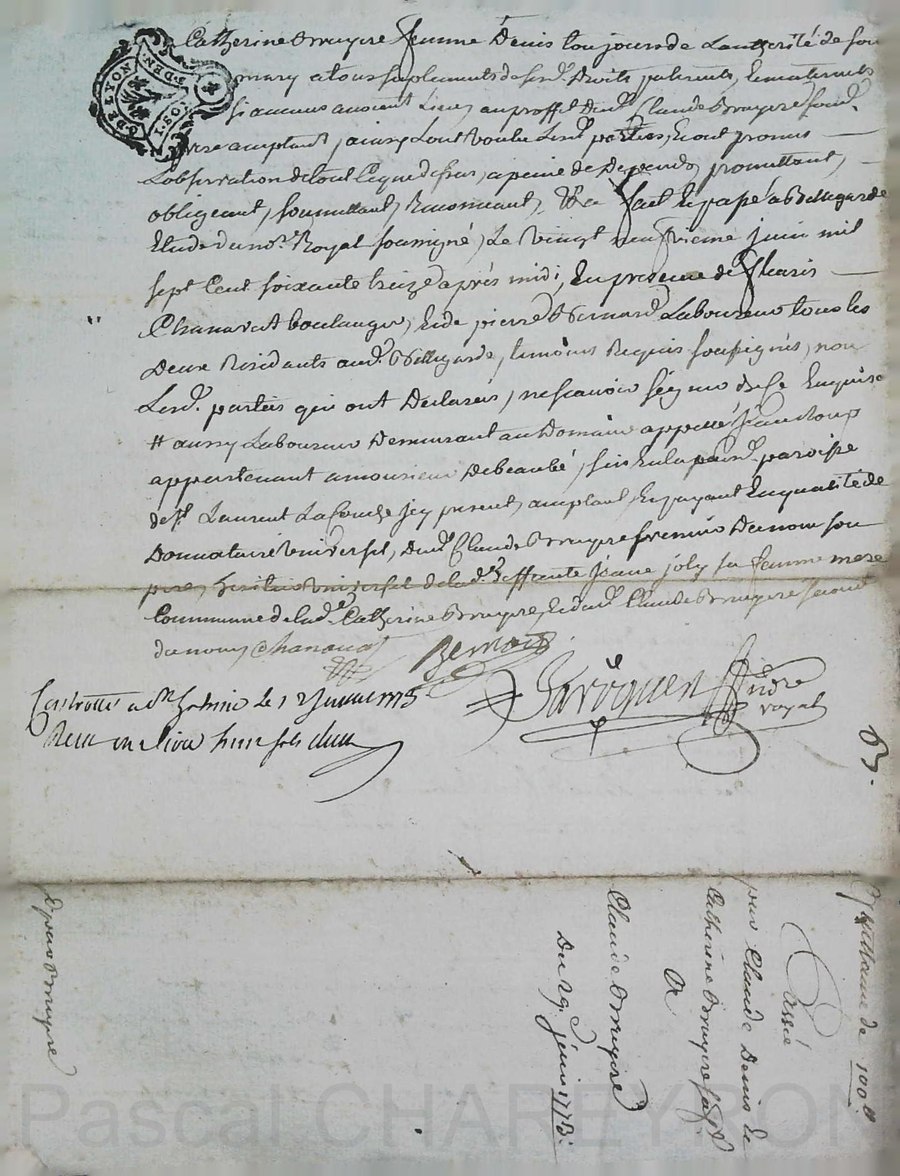 Catherine Bruyere femme Denis toujours de Lautorité de son
mary a tous suplements de sesd. Droits paternels, & maternels
si aucuns avoient Lieu, au proffit dud. Claude Bruyere son d.
frere acceptant, ainsy Lont voulu Lesd. parties, & ont promis
Lobservation de tout Ceque dessus, a peine de Depends, promettant,
obligeant, soumettant, Renonceant, &ca fait & passé a Bellegarde
Etude du no.re Royal soussigné, Le vingt neufvieme juin mil
sept Cent soixante treize après midi, En presence de fleuris
Chanavat boulanger, & de pierre Bernard Laboureur tous les
Deux Residants aud. Bellegarde, temoins Requis soussignés, non
Lesd. parties qui ont Declarés, ne scavoir signer de Ce Enquises
# aussy Laboureur Demeurant au Domaine appellé
appartenant a monsieur Debeaubé, sis En la paroisse
de St Laurent La Conche icy present, acceptant, & payant En qualité de
Donnataire universel, dud. Claude Bruyere premier Du nom son
pere, heritier universel de lad. deffunte jeane joly sa femme mere
Commune de lad. Catherine Bruyere, & dud. Claude Bruyere second
du nom, Chanavat Bernard
Barroquen
royal
Controllé a St Galmier Le 12 Juillet 1773
Recu une livre
63.
quittance de 100ll
Passée
par Claude Denis &
Catherine Bruyere sa fe.
A
Claude Bruyere
Du 29 juin 1773.
Depuis Bruyere
DE LYON
Pascal CHAREYRON